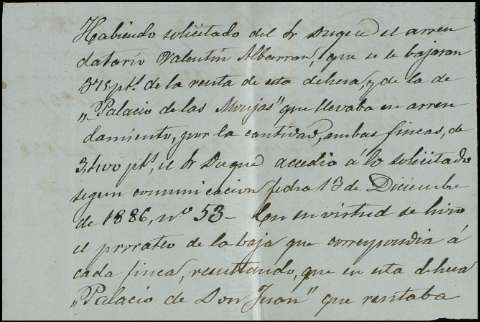 Habiendo solicitado del Sr Duque el arren
datario Valentin Albarran, que se le bajaran
pts. de la renta de esta dehesa, y de la de
"Palacio de las Monjas" que llevaba en arren
damiento, por la cantidad, ambas fincas, de
pts, el Sr Duque accedio a lo solicitado
segun comunicacion fecha 13 de Diciembre
de 1886, nº 53 - En su virtud se hizo
el prorrateo de la baja que correspondia á
cada finca, resultando, que en esta dehesa
"Palacio de Don Juan" que rentaba